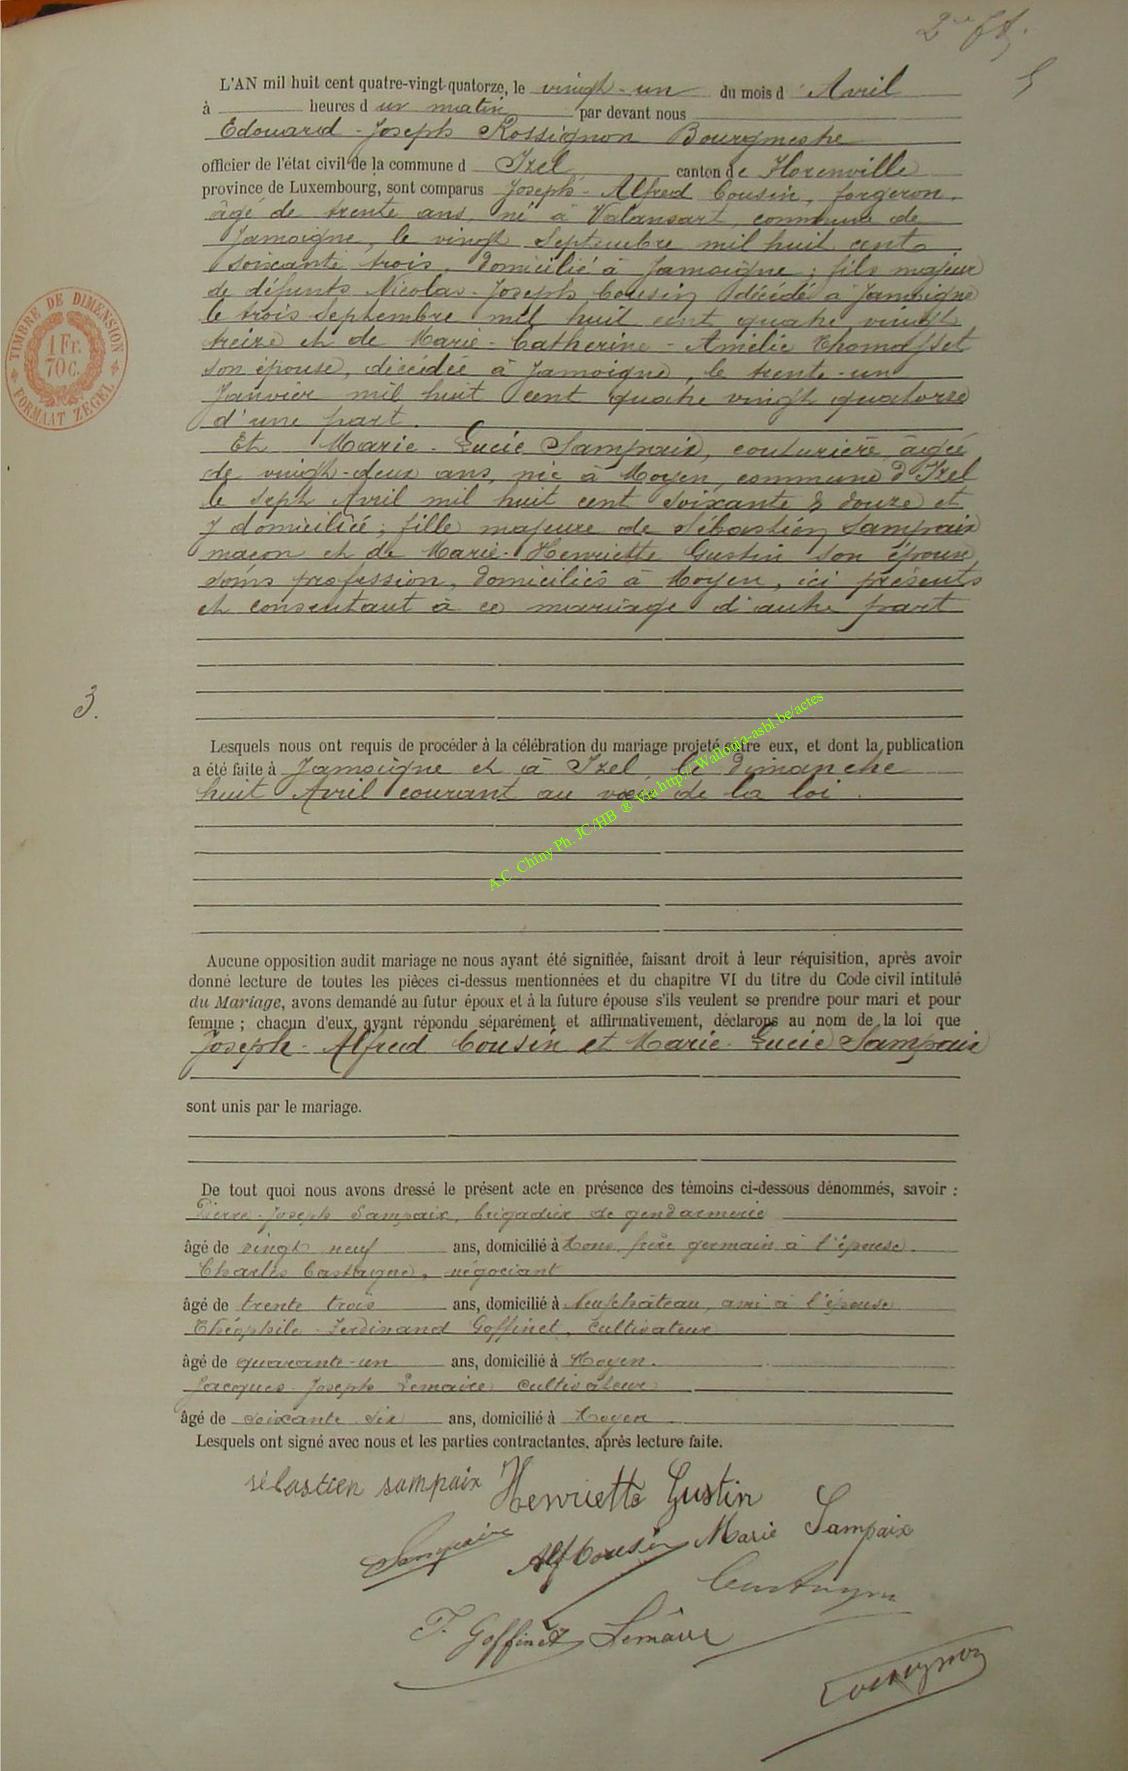 2
L'AN mil huit cent quatre-vingt-quatorze, le vingt-un du mois d Avril
à heures d un matin par devant nous
Edouard-Joseph Rossignon Bourgmestre
officier de l'état civil de la commune d Izel canton de Florenville
province de Luxembourg, sont comparus Joseph-Alfred Cousin, forgeron,
âgé de trente ans, né à Valansart, commune de
Jamoigne, le vingt Septembre mil huit cent
soixante trois, domicilié à Jamoigne; fils majeur
de défunts Nicolas-Joseph Cousin décédé à Jamoigne
le trois Septembre mil huit cent quatre vingt
treize et de Marie-Catherine-Amélie Thomasset
son épouse, décédée à Jamoigne, le trente-un
Janvier mil huit cent quatre vingt quatorze
d'une part.
Et Marie-Lucie Sampaix, couturière, âgée
de vingt-deux ans, née à Moyen, commune d'Izel
le sept Avril mil huit cent soixante & douze et
y domiciliée; fille majeure de Sébastien Sampaix
maçon et de Marie-Henriette Gustin son épouse
sans profession, domiciliés à Moyen, ici présents
et consentant à ce mariage d'autre part
3.
Lesquels nous ont requis de procéder à la célébration du mariage projeté entre eux, et dont la publication
a été faite à Jamoigne et à Izel le dimanche
huit Avril courant au vœu de la loi.
A.C Chiny Ph. JC/HB ® Via http://Wallonia-asbl.be/actes
TIMBRE DE DIMENSION
1 Fr.
70 c.
FORMAAT ZEGEL
Aucune opposition audit mariage ne nous ayant été signifiée, faisant droit à leur réquisition, après avoir
donné lecture de toutes les pièces ci-dessus mentionnées et du chapitre VI du titre du Code civil intitulé
du Mariage, avons demandé au futur époux et à la future épouse s'ils veulent se prendre pour mari et pour
femme ; chacun d'eux ayant répondu séparément et affirmativement, déclarons au nom de la loi que
Joseph-Alfred Cousin et Marie-Lucie Sampaix
sont unis par le mariage.
De tout quoi nous avons dressé le présent acte en présence des témoins ci-dessous dénommés, savoir :
Pierre-Joseph Sampaix, brigadier de gendarmerie
âgé de vingt neuf ans, domicilié à Mons, frère germain à l'épouse.
Charles Castaigne, négociant
âgé de trente trois ans, domicilié à Neufchâteau, ami à l'épouse
Théophile-Ferdinand Goffinet, cultivateur
âgé de quarante-un ans, domicilié à Moyen.
Jacques-Joseph Lemaire cultivateur
âgé de soixante six ans, domicilié à Moyen
Lesquels ont signé avec nous et les parties contractantes, après lecture faite.
sébastien sampaix Henriette Gustin
Sampaix Alf Cousin Marie Sampaix
Castaigne
T. Goffinet Lemaire
Rossignon